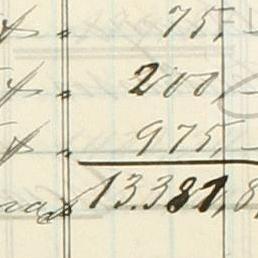 " 75,-
" 200,-
" 975,-
13.381,8